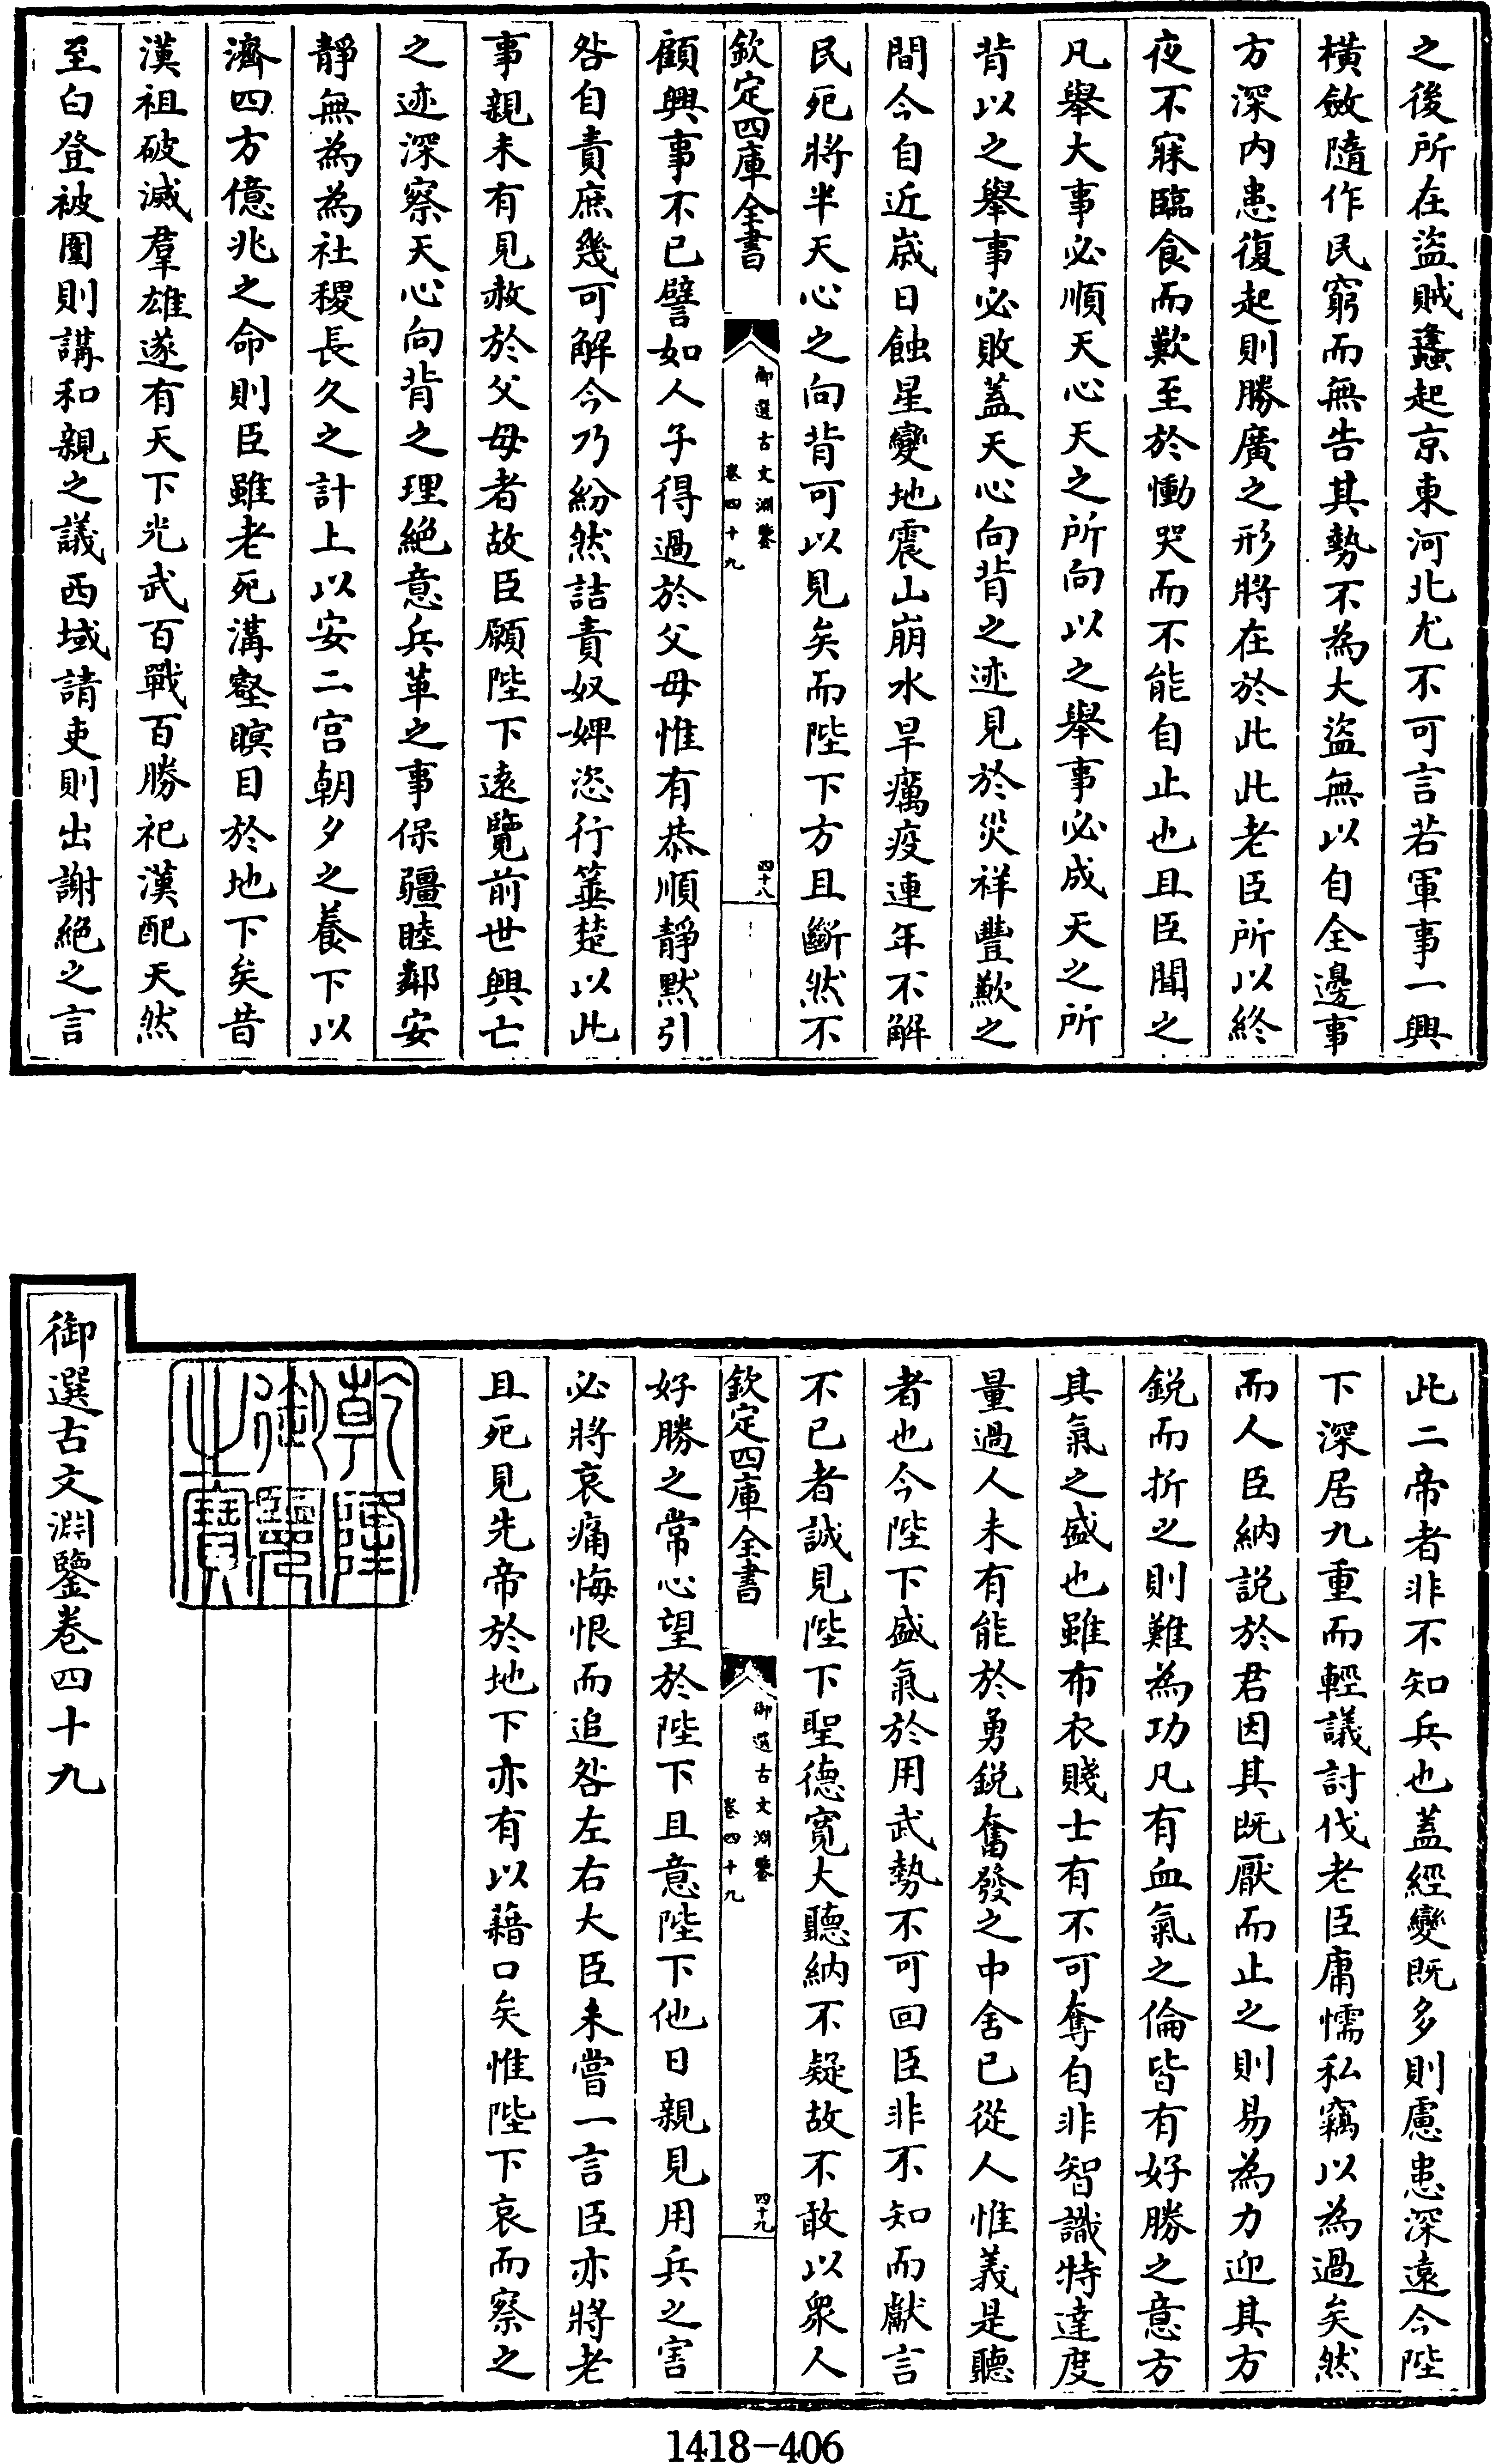 之後所在盜賊蠭起京東河北尤不可言若軍事一興
橫斂隨作民窮而無告其勢不為大盜無以自全邊事
方深内患復起則勝廣之形將在於此此老臣所以終
夜不寐臨食而歎至於慟哭而不能自止也且臣聞之
凡舉大事必順天心天之所向以之舉事必成天之所
背以之舉事必敗蓋天心向背之迹見於災祥豐歉之
間今自近嵗日蝕星變地震山崩水旱癘疫連年不解
民死將半天心之向背可以見矣而陛下方且斷然不
欽定四庫全書
御選古文淵鑒
卷四十九
四十八
顧興事不已譬如人子得過於父母惟有恭順靜默引
咎自責庶幾可解今乃紛然詰責奴婢恣行箠楚以此
事親未有見赦於父母者故臣願陛下遠覽前世興亡
之迹深察天心向背之理絶意兵革之事保疆睦鄰安
靜無為為社稷長久之計上以安二宫朝夕之養下以
濟四方億兆之命則臣雖老死溝壑瞑目於地下矣昔
漢祖破滅羣雄遂有天下光武百戰百勝祀漢配天然
至白登被圍則講和親之議西域請吏則出謝絶之言
此二帝者非不知兵也蓋經變既多則慮患深遠今陛
下深居九重而輕議討伐老臣庸懦私竊以為過矣然
而人臣納説於君因其既厭而止之則易為力迎其方
鋭而折之則難為功凡有血氣之倫皆有好勝之意方
其氣之盛也雖布衣賤士有不可奪自非智識特達度
量過人未有能於勇鋭奮發之中舍已從人惟義是聽
者也今陛下盛氣於用武勢不可回臣非不知而獻言
不已者誠見陛下聖德寛大聽納不疑故不敢以衆人
欽定四庫全書
御選古文淵鑒
卷四十九
四十九
好勝之常心望於陛下且意陛下他日親見用兵之害
必將哀痛悔恨而追咎左右大臣未嘗一言臣亦將老
且死見先帝於地下亦有以藉口矣惟陛下哀而察之
乾隆
御覽
之寶
御選古文淵鑒卷四十九
1418-406